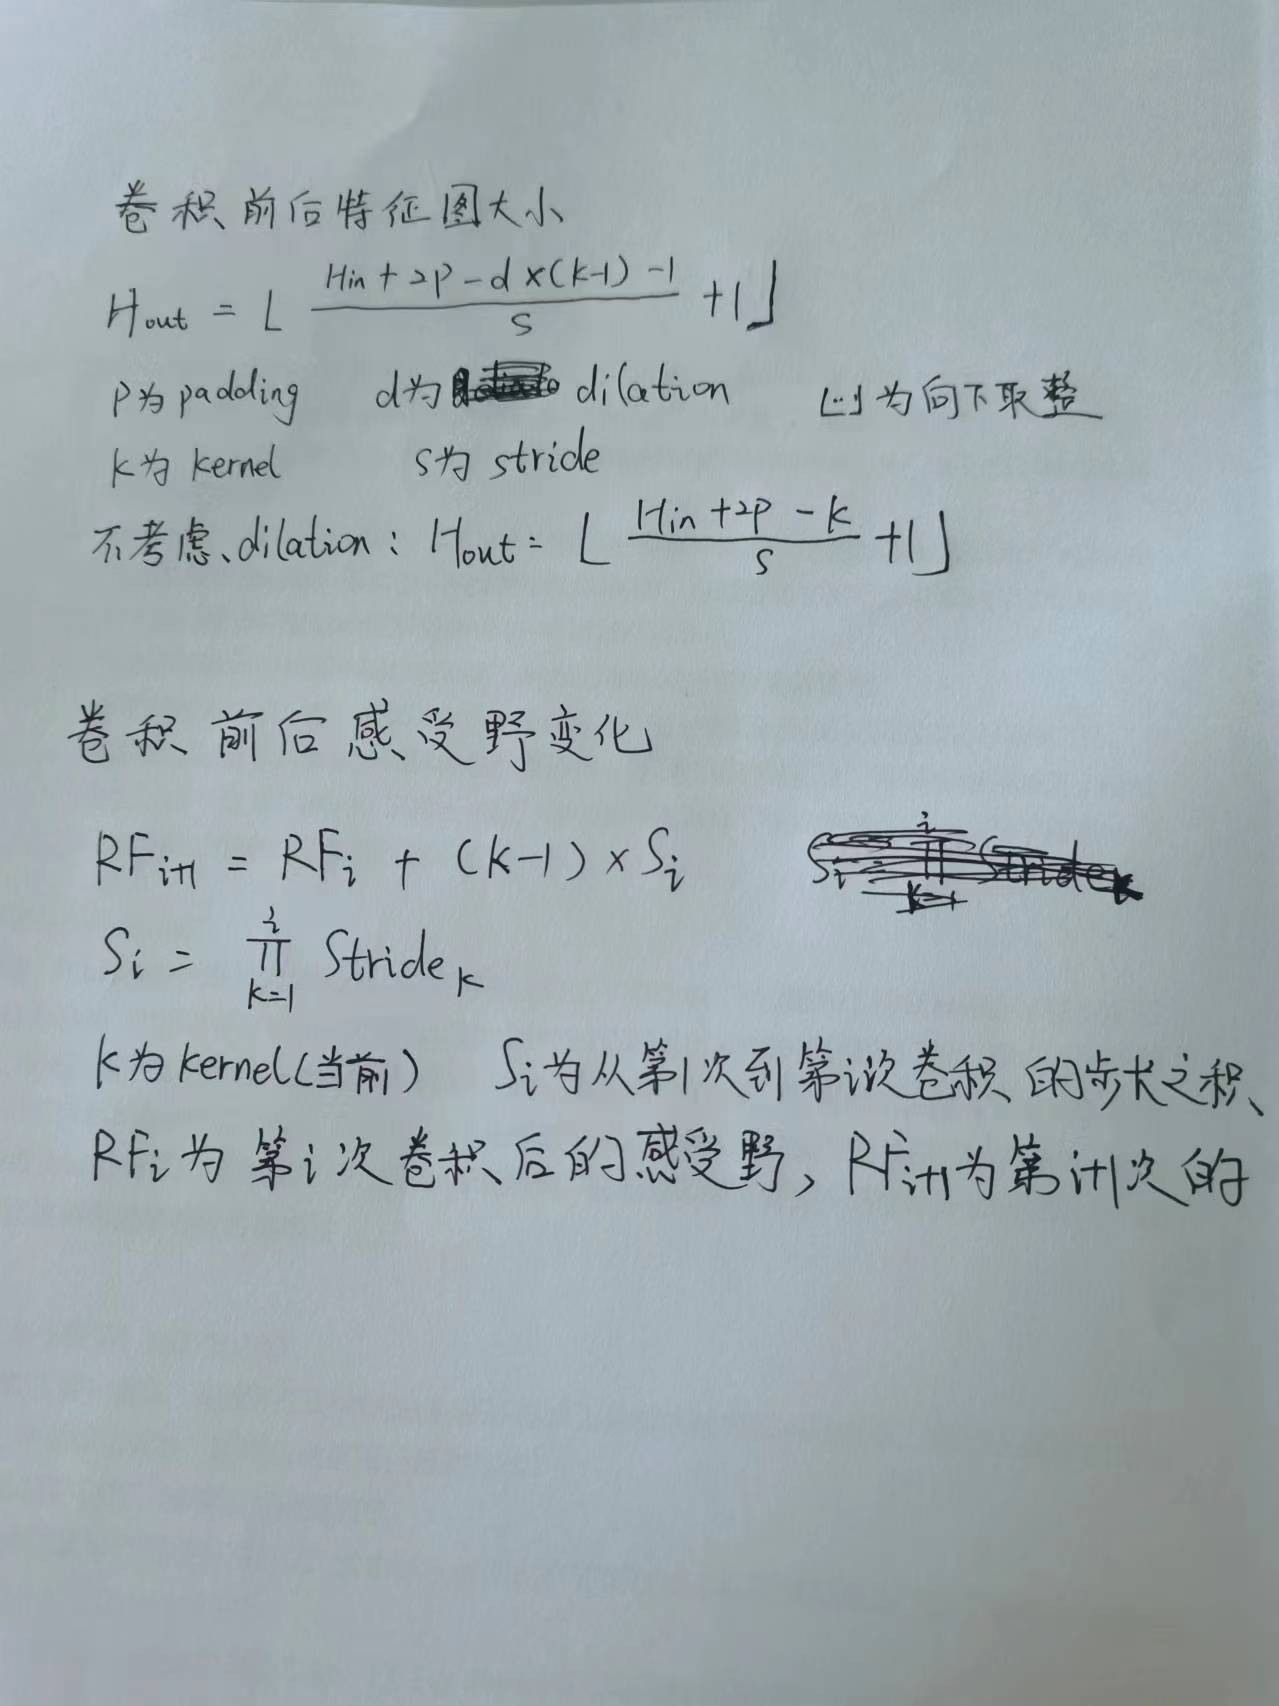 卷积前后特征图大小
Hout = ⌊ (Hin + 2P - d×(k-1) - 1)/S + 1⌋
P为padding d为 dilation ⌊…⌋为向下取整
k为kernel S为stride
不考虑dilation: Hout = ⌊ (Hin + 2P - k)/S + 1⌋
卷积前后感受野变化
RFi+1 = RFi + (k-1)×Si
Si = ∏(k=1→i) Stride k
k为kernel(当前) Si为从第1次到第i次卷积的步长之积
RFi为第i次卷积后的感受野, RFi+1为第i+1次的